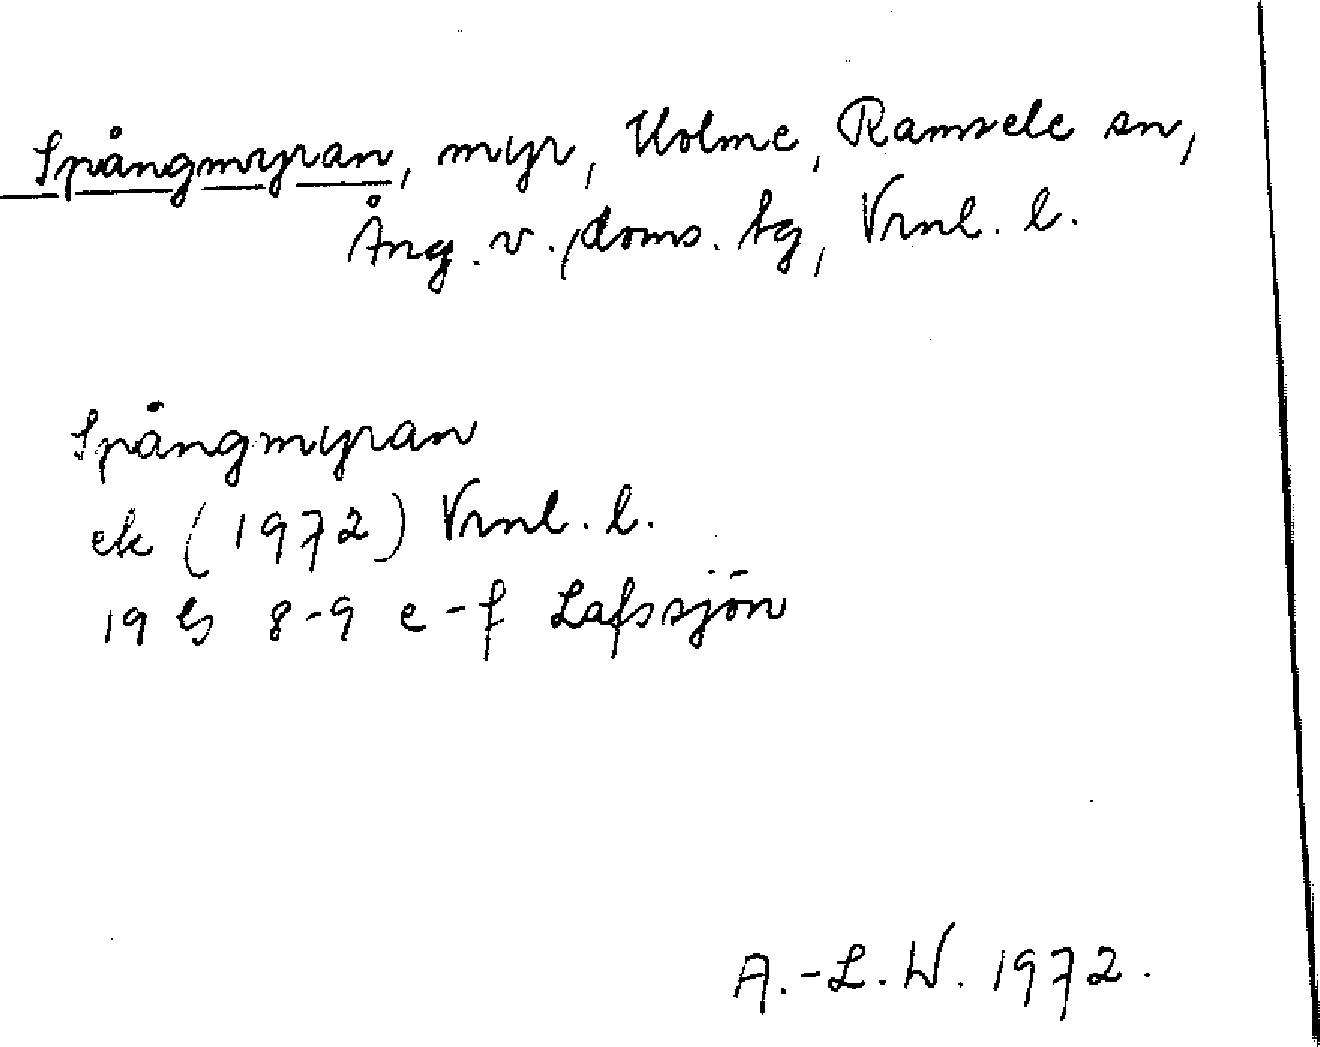 Spångmyran, myr, Holme, Ramsele sn,
Ång. v. doms. tg, Vrnl. l.
Spångmyran
ek (1972) Vrnl. l.
19 G 8-9 e-f Lafssjön
A.-L. W. 1972.